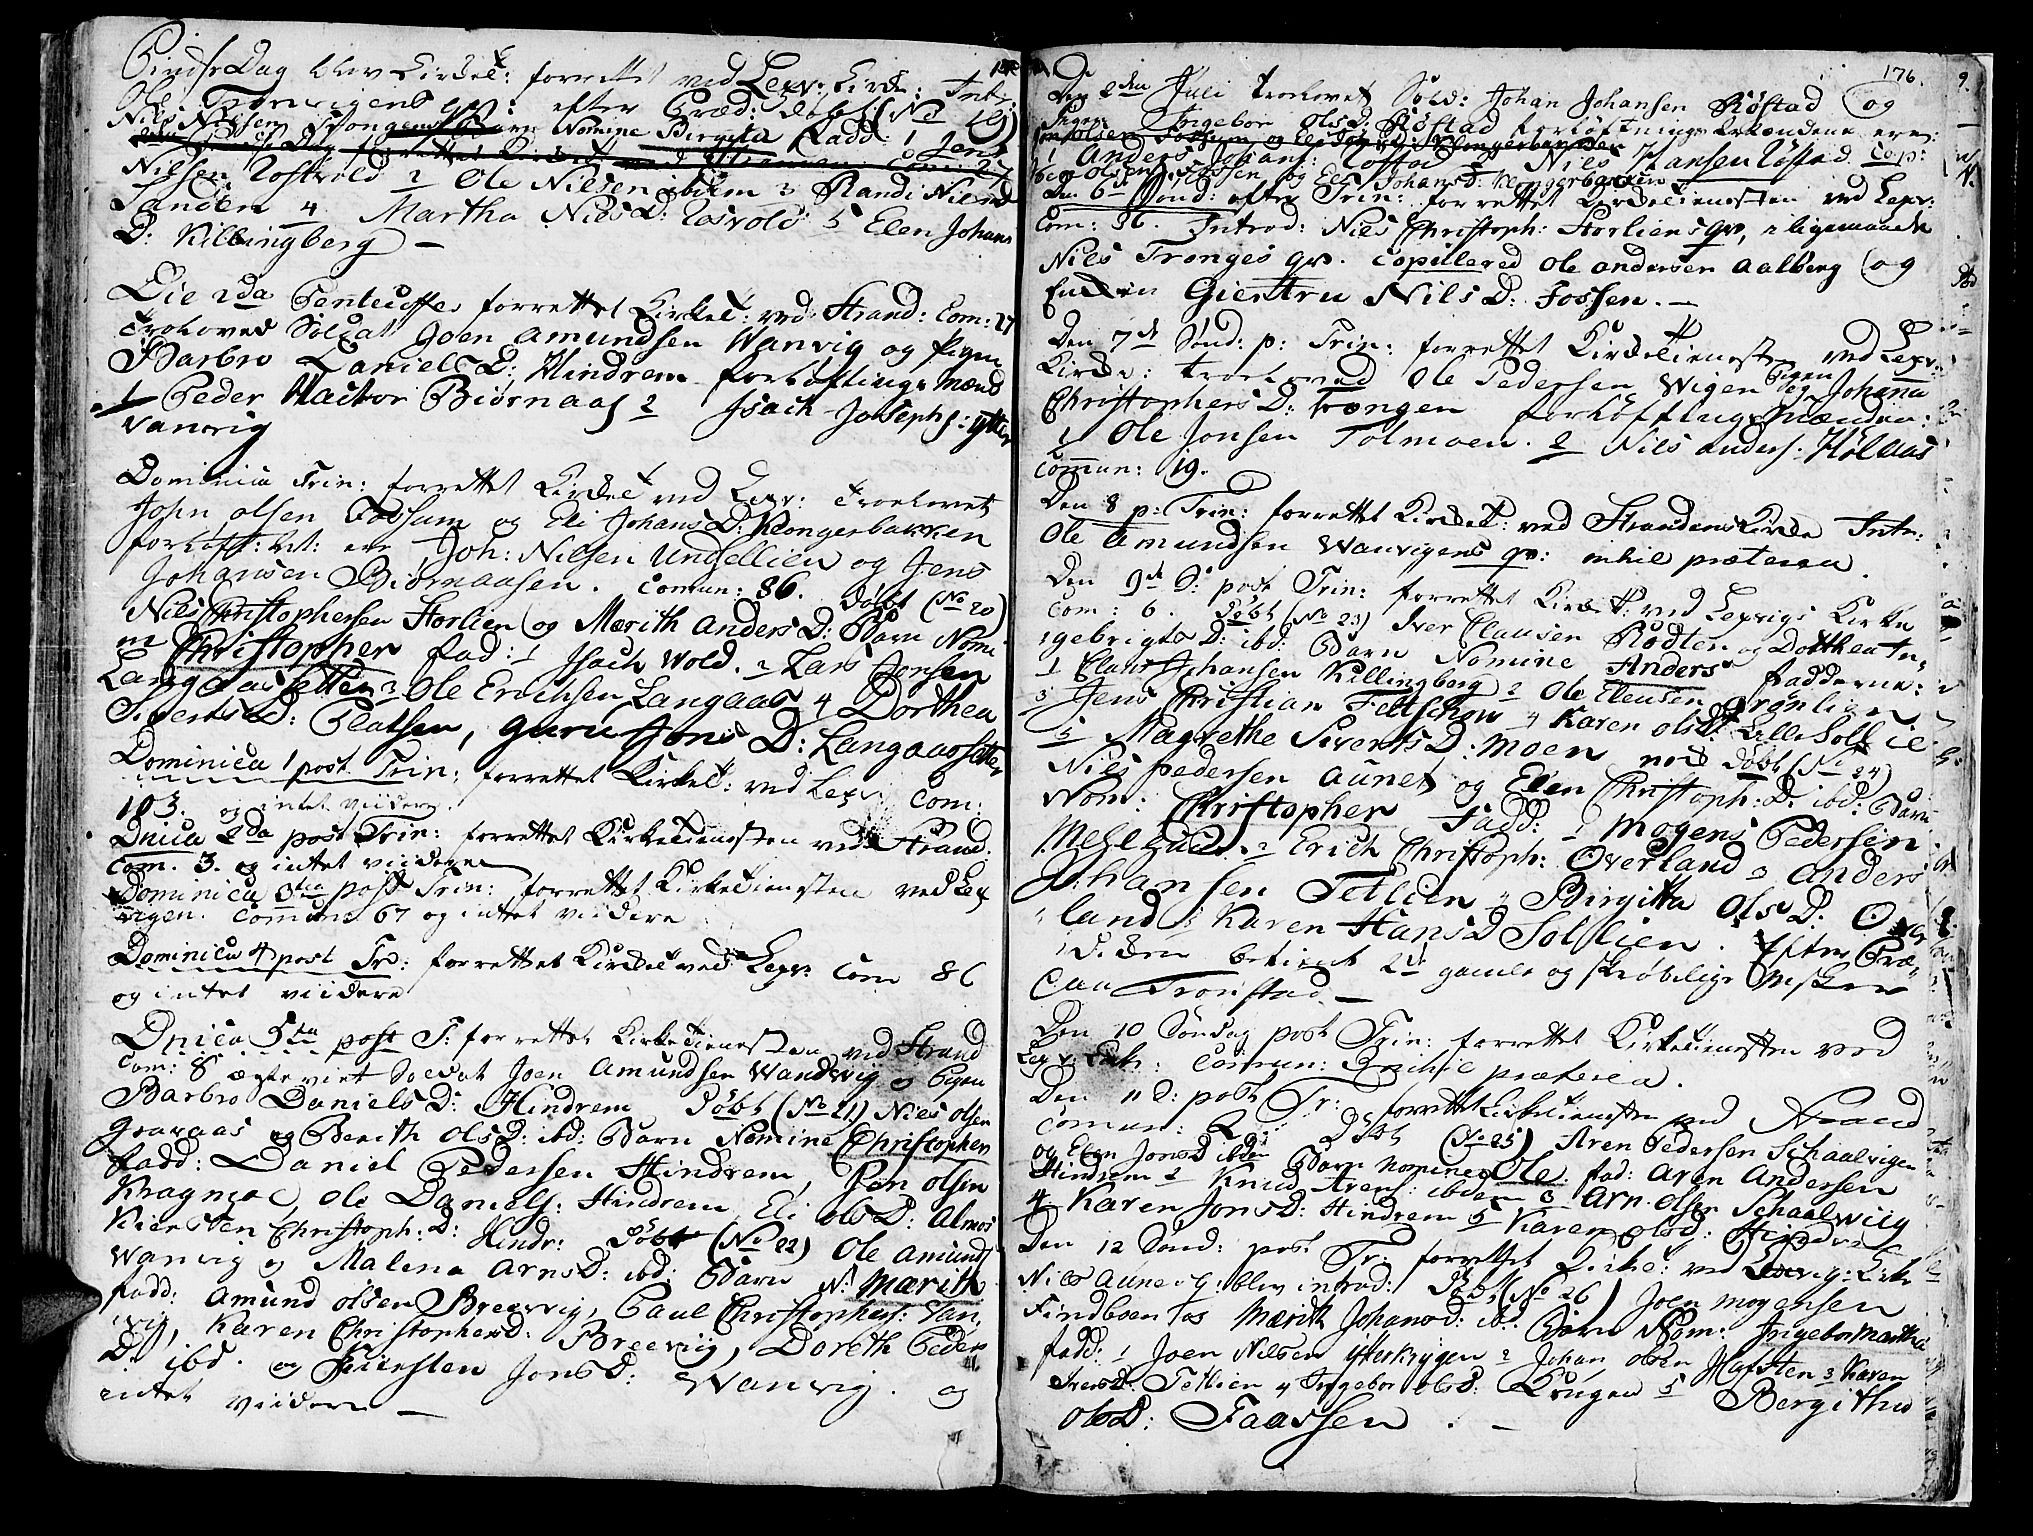 Pindse Dag blev Kirket: forrettet ved Lexv: Kirke: Intr:
Ole Trønvigens qv: efter Præd: Døbt (No 19)
Nils Nilsen Wongens Barn Nomine Birgita Fadd: 1 Jens
Nilsen Rostvold 2 Ole Nilsen ibidem 3 Randi Niels D
Sanden 4 Martha NilsD: Rosvold 5 Elen Johans
D: Killingberg —
Die 2da Pentecostes forrettet Kirket: ved Strand: Com: 27
Troloved Soldat Joen Amundsen Wanvig og Pigen
Barbro Daniels D: Hindrem forløftings Mænd
1 Peder Hactor Biørnaas 2 Isach Josephs: ytter
Vanvig
Dominica Trin: forrettet Kirket ved Lexv: Troelovet
John Olsen Fossum og Eli JohansD: Klongerbakken
forløft: ere Joh: Nilsen Undellien og Jens
Johansen Biørnaasen. Comun: 86. Døbt (No 20)
Nils Christophersen Storlien og Mærith Anders D: Barn Nomi
ne Christopher fad: 1 Isach Wold. 2 Lars Jonsen
Langaas Setten 3 Ole Erichsen Langaas 4 Dorthea
Siverts D: Platsen, Guru Jons D: Langaassetter
Dominica 1 post Trin: forrettet Kirket: ved Lexv: Com:
103. og intet viidere
Dnica 2da post Trin: forrettet Kirketienesten ved Strand.
Com. 3. og intet viidere
Dominica 3tia post Trin: forrettet Kirketienesten ved Lex
vigen. Comun: 67 og intet viidere
Dominica 4 post Tr: forrettet Kirket ved Lexv: Com 86
og intet viidere
Dnica 5ta post T: forrettet Kirketienesten ved Strand
Com: 8 ægteviet Soldat Joen Amundsen Wandvig og Pigen
Barbro Daniels D: Hindrem Døbt (No 21) Niels Olsen
Graraas og Berith Ols D: ibd: Barn Nomine Christopher
fadd: Daniel Pedersen Hindrem, Pen Olsen
Kragmoe, Ole Daniels: Hindrem, Eli Ols D: Almos
Kiersten Christoph: D: Hindr: Døbt (No 22) Ole Amunds
Wanvig og Malena Arns D: ibd: Barn N: Mærith
fadd: Amund Olsen Breevig, Paul Christophers: Van
vig, Karen Christophersd: Breeviig, Doreth Peders
D: ibd. og Kiersten Jons D: Wanvig. og
intet viidere —
176.
Den 2den Juli Trolovet Sold: Johan Johansen Røstad og
Pigen Ingebor Ols D: Røstad forløftnings Mændene ere:
1 Anders Johans: Røstad 2 Nils Hansen Røstad Cop:
John Olsen Fossen og Eli Johans D: Klongerbakken
Den 6te Sønd: efter Trin: forrettet Kirketienesten ved Lexv:
Com: 36. Introd: Nils Christoph: Storliens qv, i ligemaade
Nils Tronges qv. Copulered Ole Andersen Aalberg og
Enken Giertru Nils D: Fossen. —
Den 7de Sønd: p: Trin: forrettet Kirketienesten ved Lexv:
Kirke: troeloved Ole Pedersen Wigen og Pigen Johana
Christophers D: Trongen forløftnings Mænden:
1 Ole Jonsen Tolmoen. 2 Nils Anders: Hølaas
Comun: 19.
Den 8 p: Trin: forrettet Kirket: ved Strandens Kirke Intr:
Ole Amundsen Wanvigens qv: nihil præterea.
Den 9de S: post Trin: forrettet Kirket: ved Lexvigs Kirke
Com: 6. Døbt (No 23) Iver Clausen Rødten og Dorthea In,
gebrigts D: ibd: Barn Nomine Anders Fadderne:
1 Claus Johansen Killingberg 2 Ole Elensen Grønlien
3 Jens Christian Feltschow 4 Karen Ols D: Lille Sollie
5 Magrethe Siverts D: Moen nod Døbt (No 24)
Nils Pedersen Aunet og Elen Christoph: D: ibd: Barn
Nom: Christopher Fadd: 1 Mogens Pedersen
Mehlhuus. 2 Erich Christoph: Overland 3 Anders
Johansen Tetlien 4 Birgitta Ols D: Over
land 5 Karen Hans D Sollien. Efter Præ,
diken betient 2de gamle og skrøbelige Msker
paa Tronstad —
Den 10 Søndag post Trin: forrettet Kirketienesten ved
Lexv: Kirk: Comun: nihil præterea.
Den 11 S: post Tr: forrettet Kirketienesten ved Strand
Comun: Døbt (No 25) Aren Pedersen Schaalvigen
og Elen Jons D ibdem Barn Nomine Ole fad: Aren Andersen
Hindrem 2 Knud Arens: ibdem 3 Arn Olsen Schaalwiig
4 Karen Jons D: Hindrem 5 Karen Olsd: Hindrem
Den 12 Sønd: post Tr: forrettet Kirket: ved Lexvig: Kirke
Nils Aunes q: blev introd: Døbt (No 26) Joen Mogensen
Findboen os Mærith Johansd: ib: Børn Nom: Ingebor Martha
fadd: 1 Joen Nilsen ytterkrygen 2 Johan Olsen Hafsten 3 Karen
Ivers D: Tetlien 4 Ingebor Olsd: Krugen 5 Bergitha
Ols D: Faassen. —